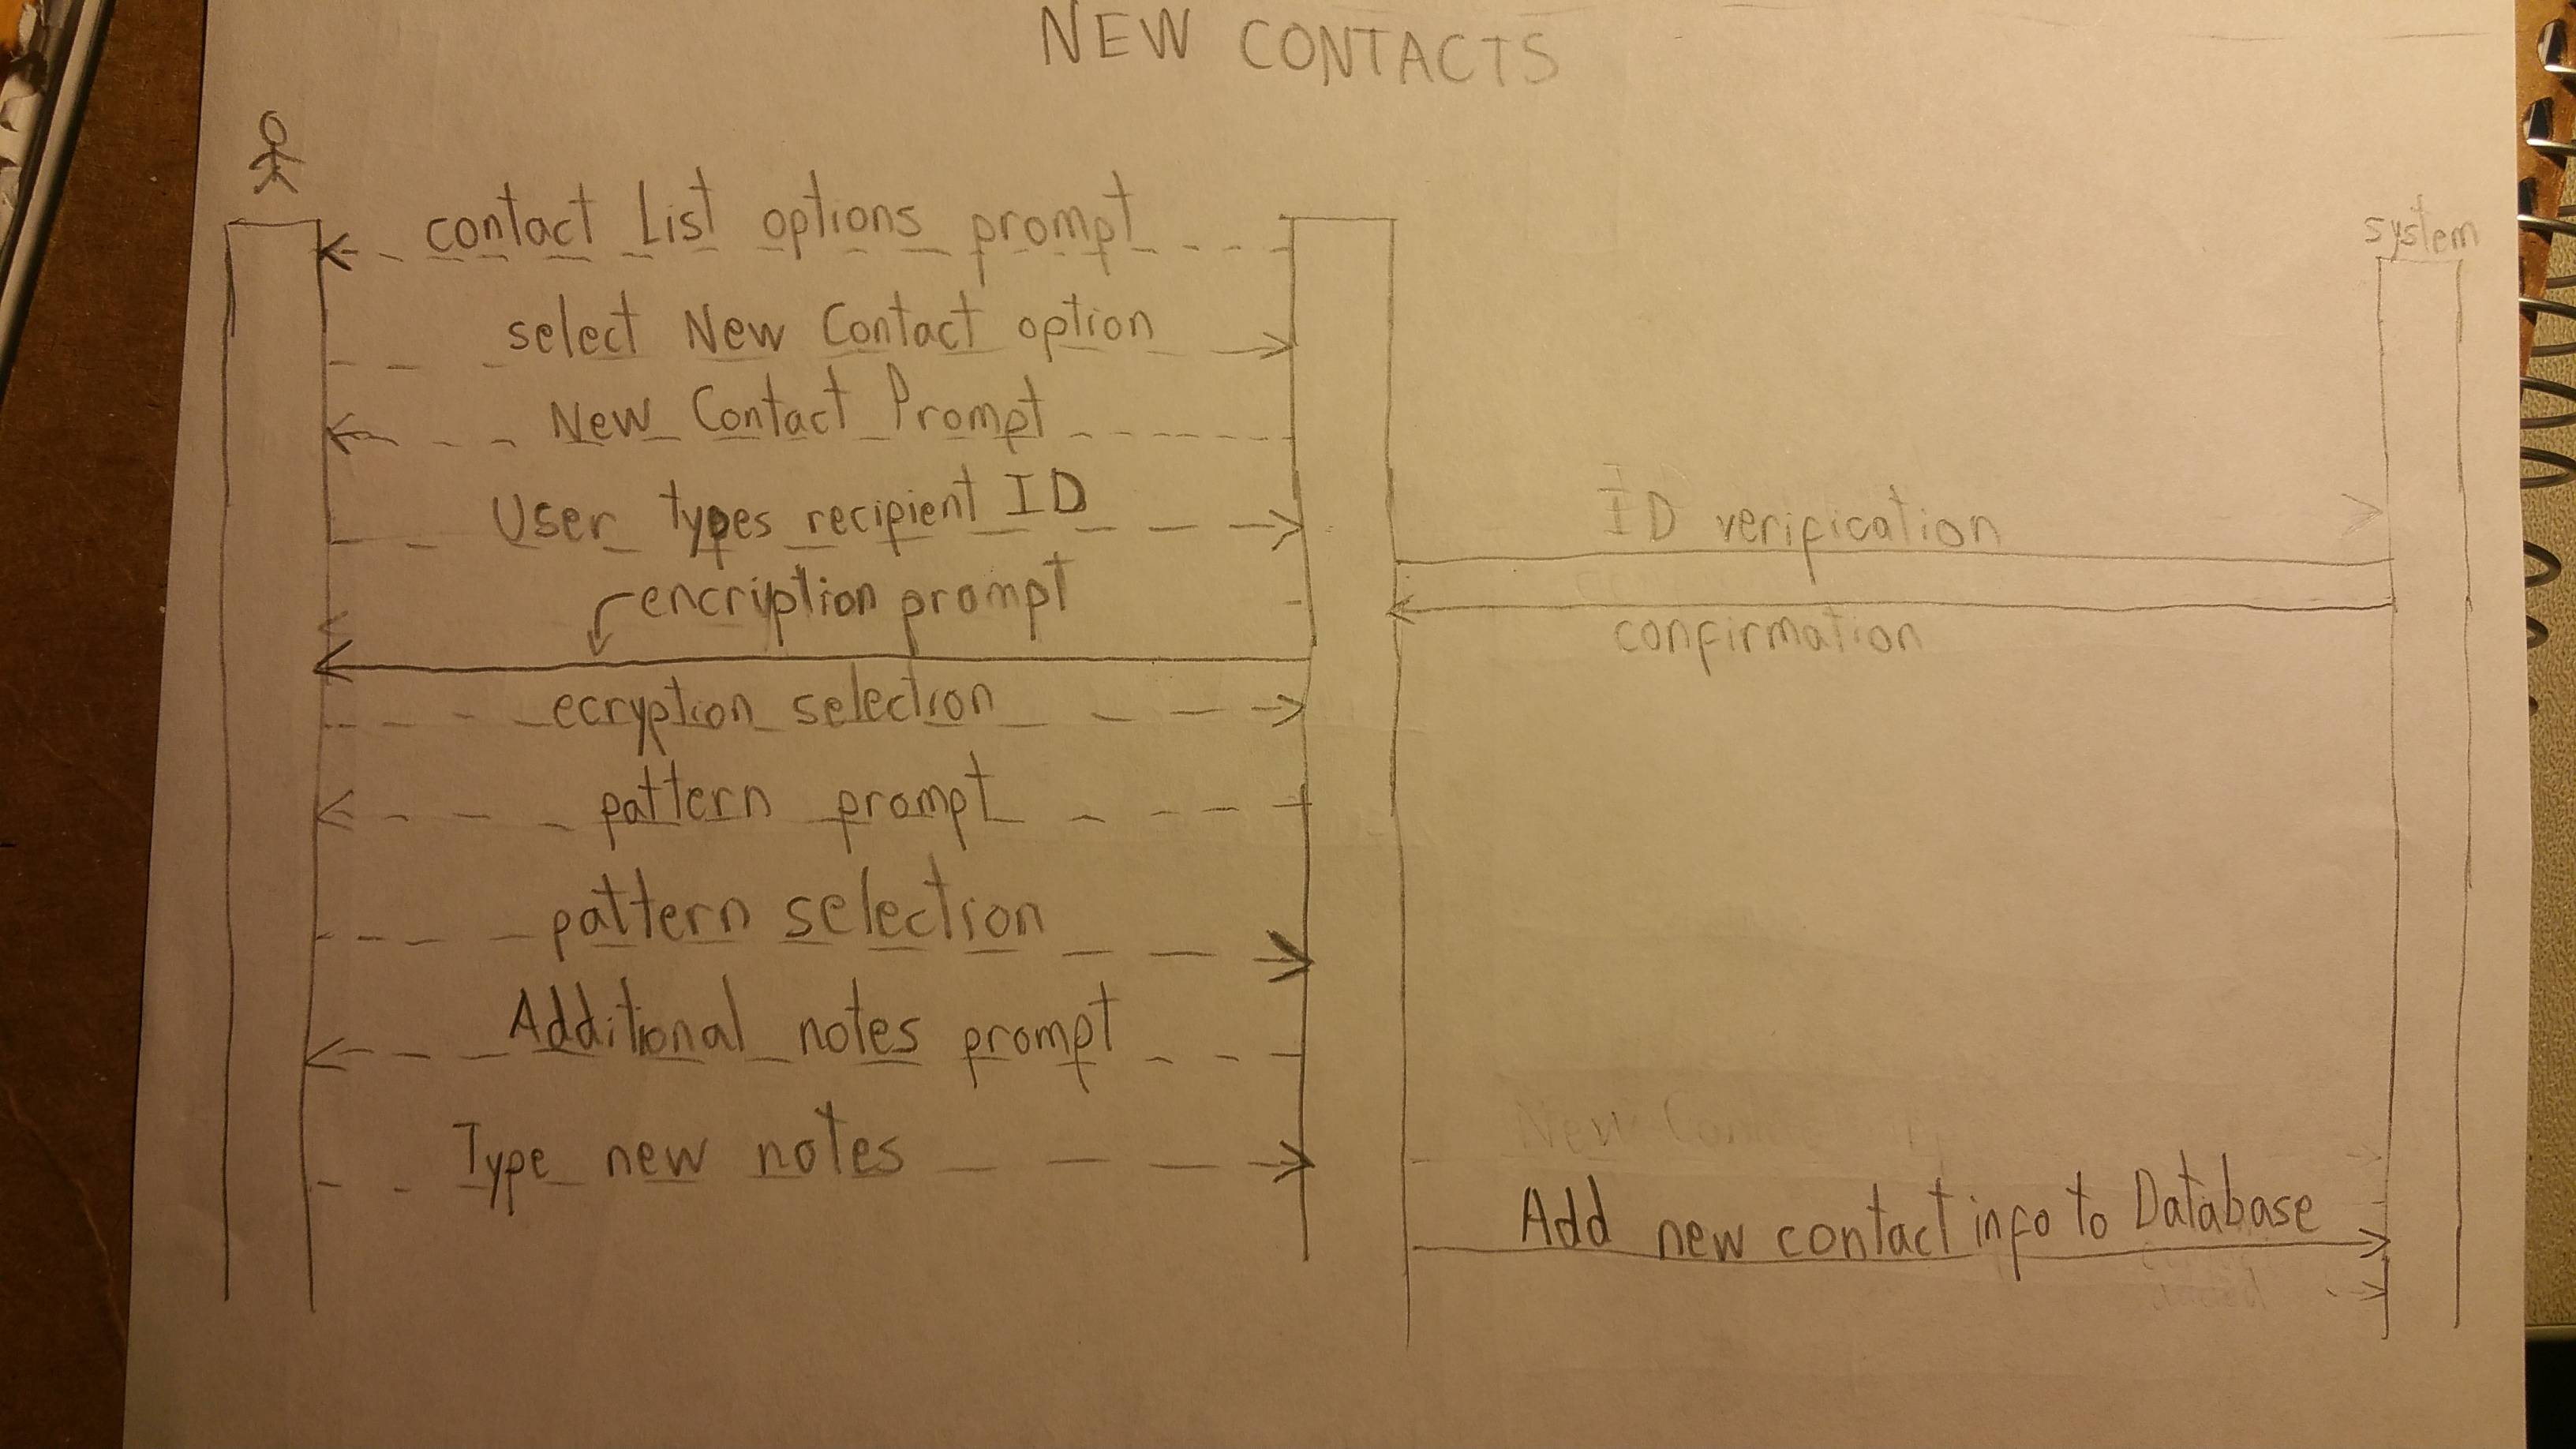 NEW CONTACTS
system
contact List options prompt
select New Contact option
New Contact Prompt
User types recipient ID
ID verification
encription prompt
confirmation
ecryption selection
pattern prompt
pattern selection
Additional notes prompt
Type new notes
New
Add new contact info to Database